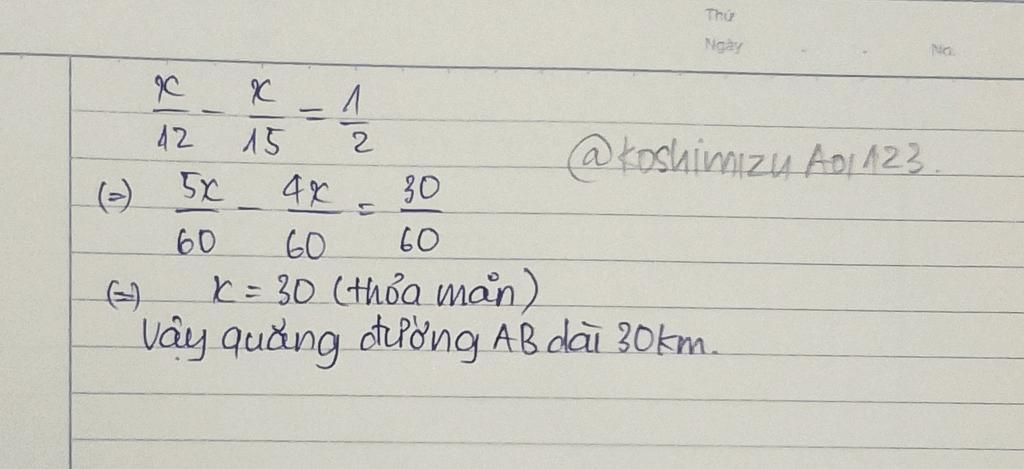 Thứ
Ngày . . No.
x/12 - x/15 = 1/2
@koshimizuAoi123.
(=) 5x/60 - 4x/60 = 30/60
(=) x = 30 (thỏa mãn)
Vậy quãng đường AB dài 30km.